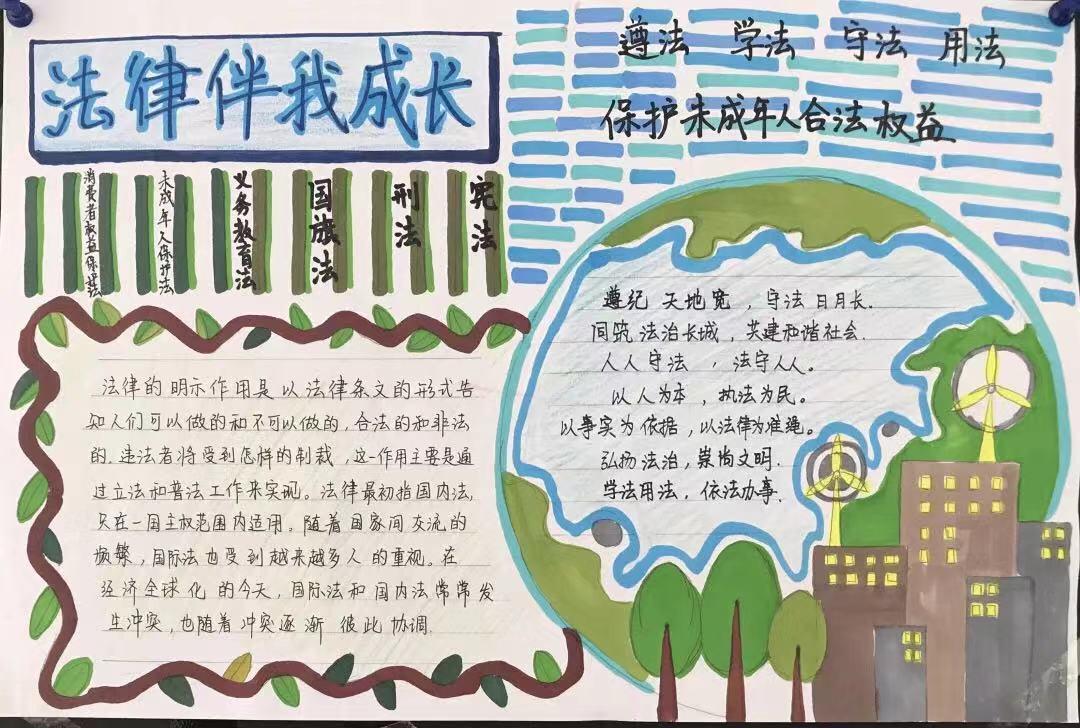 法律伴我成长
遵法 学法 守法 用法
保护未成年人合法权益
宪法
刑法
国旗法
义务教育法
未成年人保护法
消费者权益保护法
法律的明示作用是以法律条文的形式告
知人们可以做的和不可以做的,合法的和非法
的.违法者将受到怎样的制裁,这一作用主要是通
过立法和普法工作来实现。法律最初指国内法,
只在一国主权范围内适用。随着国家间交流的
频繁,国际法也受到越来越多人的重视。在
经济全球化的今天,国际法和国内法常常发
生冲突,也随着冲突逐渐彼此协调.
遵纪天地宽,守法日月长.
同筑法治长城,共建和谐社会.
人人守法,法守人人。
以人为本,执法为民。
以事实为依据,以法律为准绳。
弘扬法治,崇尚文明.
学法用法,依法办事.